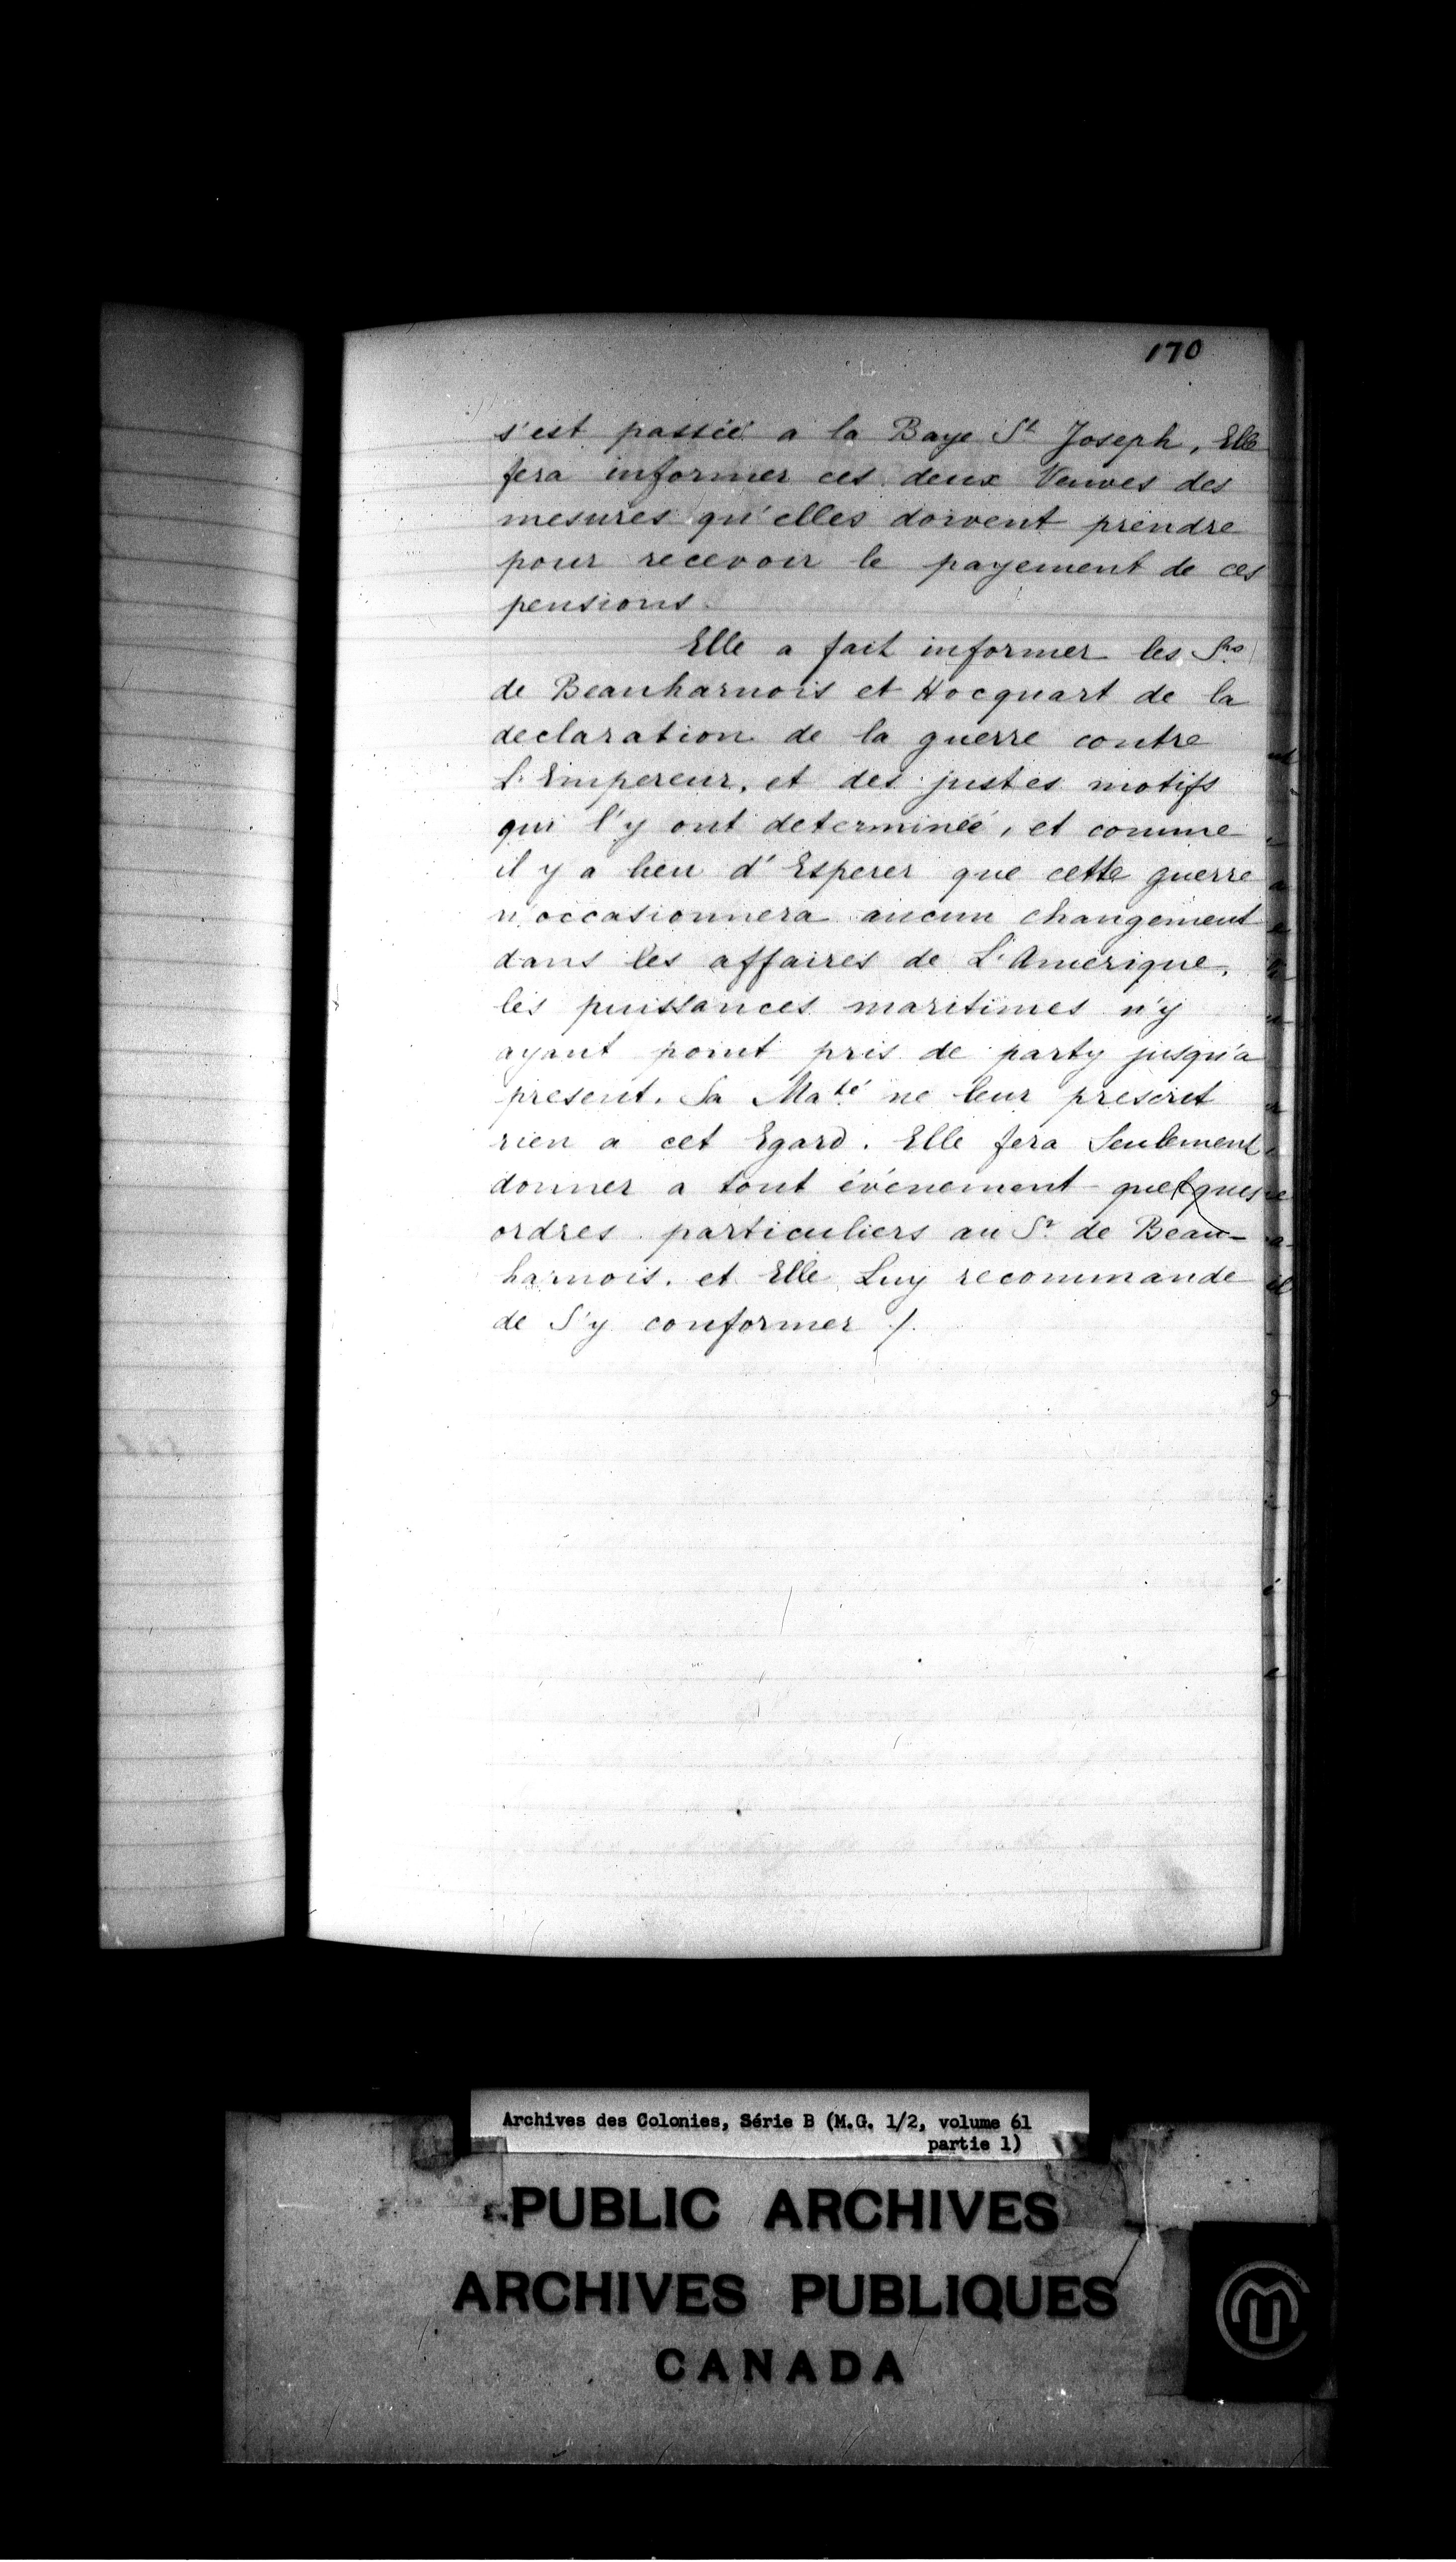 170
s'est passée a la Baye St Joseph, Elle
fera informer ces deux Veuves des
mesures qu'elles doivent prendre
pour recevoir le payement de ces
pensions.
Elle a fait informer les Srs
de Beauharnois et Hocquart de la
declaration de la guerre contre
L'Empereur, et des justes motifs
qui l'y ont determinée, et comme
il y a lieu d'Esperer que cette guerre
n'occasionnera aucun changement
dans les affaires de L'Amerique,
les puissances maritimes n'y
ayant point pris de party jusqu'a
present. Sa Maté ne leur prescrit
rien a cet Egard. Elle fera Seulement
donner a tout événement quelques
ordres particuliers au Sr de Beau-
harnois. et Elle Luy recommande
de S'y conformer /.
Archives des Colonies, Série B (M.G. 1/2, volume 61
partie 1)
PUBLIC ARCHIVES
ARCHIVES PUBLIQUES
CANADA